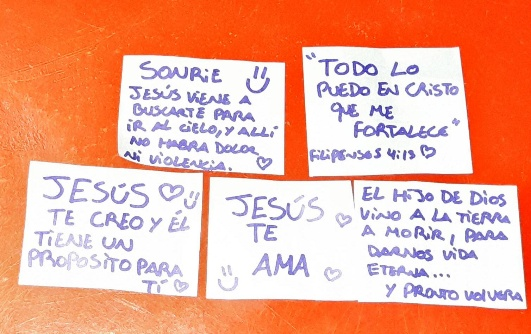 SONRIE
JESÚS VIENE A
BUSCARTE PARA
IR AL CIELO, Y ALLI
NO HABRA DOLOR
NI VIOLENCIA.
"TODO LO
PUEDO EN CRISTO
QUE ME
FORTALECE"
FILIPENSES 4:13
JESÚS
TE CREO Y ÉL
TIENE UN
PROPOSITO PARA
TI
JESÚS
TE
AMA
EL HIJO DE DIOS
VINO A LA TIERRA
A MORIR, PARA
DARNOS VIDA
ETERNA...
Y PRONTO VOLVERA